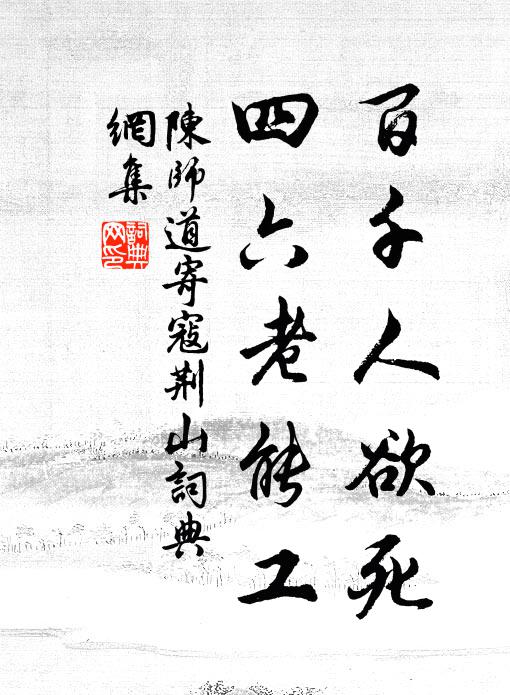 百千人欲死
四六老能工
陳師道寄寇荆山詞典
網集
詞典
网印